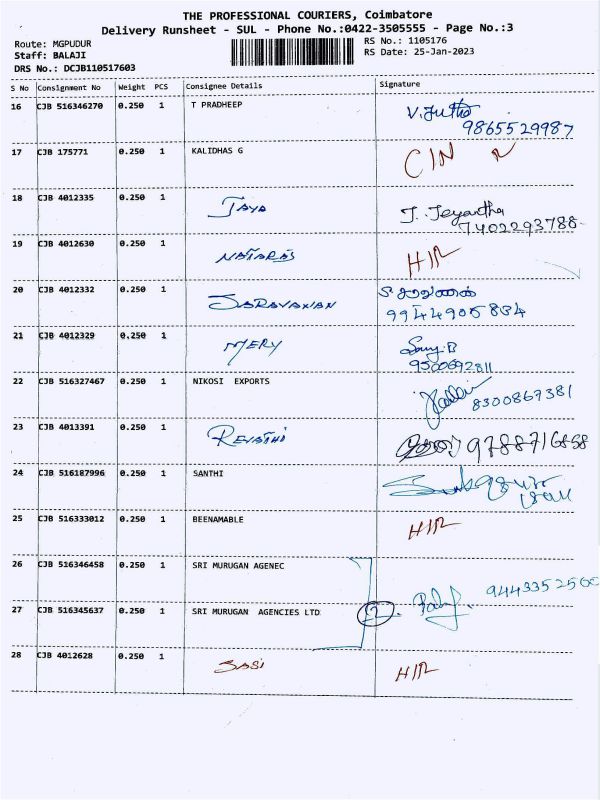 THE PROFESSIONAL COURIERS, Coimbatore
Delivery Runsheet - SUL - Phone No.:0422-3505555 - Page No.:3
Route: MGPUDUR RS No.: 1105176
Staff: BALAJI RS Date: 25-Jan-2023
DRS No.: DCJB110517603
S No Consignment No Weight PCS Consignee Details Signature
16 CJB 516346270 0.250 1 T PRADHEEP
9865529987
17 CJB 175771 0.250 1 KALIDHAS G
18 CJB 4012335 0.250 1 JAYA J. Jeyantha
7402293788
19 CJB 4012630 0.250 1 NATARAS
20 CJB 4012332 0.250 1 SARAVANAN
9944905834
21 CJB 4012329 0.250 1 MERY
9500692811
22 CJB 516327467 0.250 1 NIKOSI EXPORTS 8300867381
23 CJB 4013391 0.250 1 REVATHI 9788716858
24 CJB 516187996 0.250 1 SANTHI
25 CJB 516333012 0.250 1 BEENAMABLE
26 CJB 516346458 0.250 1 SRI MURUGAN AGENEC
27 CJB 516345637 0.250 1 SRI MURUGAN AGENCIES LTD
28 CJB 4012628 0.250 1 SASI